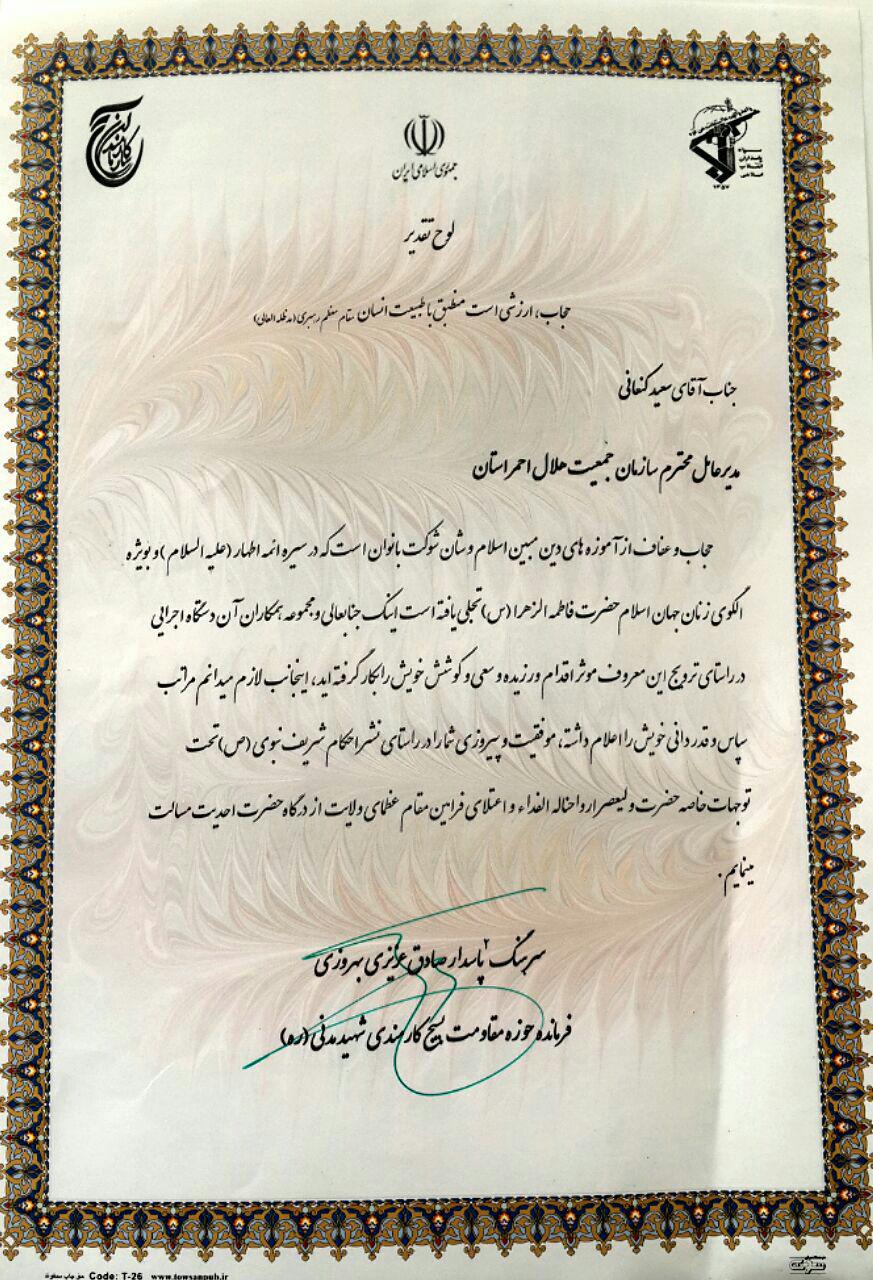 سپاه
پاسداران
انقلاب
اسلامی
۱۳۵۷
جمهوری اسلامی ایران
بسیج
کارمندان
لوح تقدیر
حجاب، ارزشی است منطبق با طبیعت انسان مقام معظم رهبری (مدظله العالی)
جناب آقای سعید کنعانی
مدیرعامل محترم سازمان جمعیت هلال احمر استان
حجاب و عفاف از آموزه های دین مبین اسلام و شان شوکت بانوان است که در سیره ائمه اطهار (علیه السلام) و بویژه
الگوی زنان جهان اسلام حضرت فاطمه الزهرا (س) تجلی یافته است اینک جنابعالی و مجموعه همکاران آن دستگاه اجرایی
در راستای ترویج این معروف موثر اقدام ورزیده و سعی و کوشش خویش را بکار گرفته اید، اینجانب لازم میدانم مراتب
سپاس و قدردانی خویش را اعلام داشته، موفقیت و پیروزی شما را در راستای نشر احکام شریف نبوی (ص) تحت
توجهات خاصه حضرت ولیعصر ارواحناله الفداء و اعتلای فرامین مقام عظمای ولایت از درگاه حضرت احدیت مسالت
مینمایم.
سرهنگ ۲ پاسدار صادق عزیزی بهروزی
فرمانده حوزه مقاومت بسیج کارمندی شهید مدنی (ره)
Code: T-26 www.towsanpub.ir